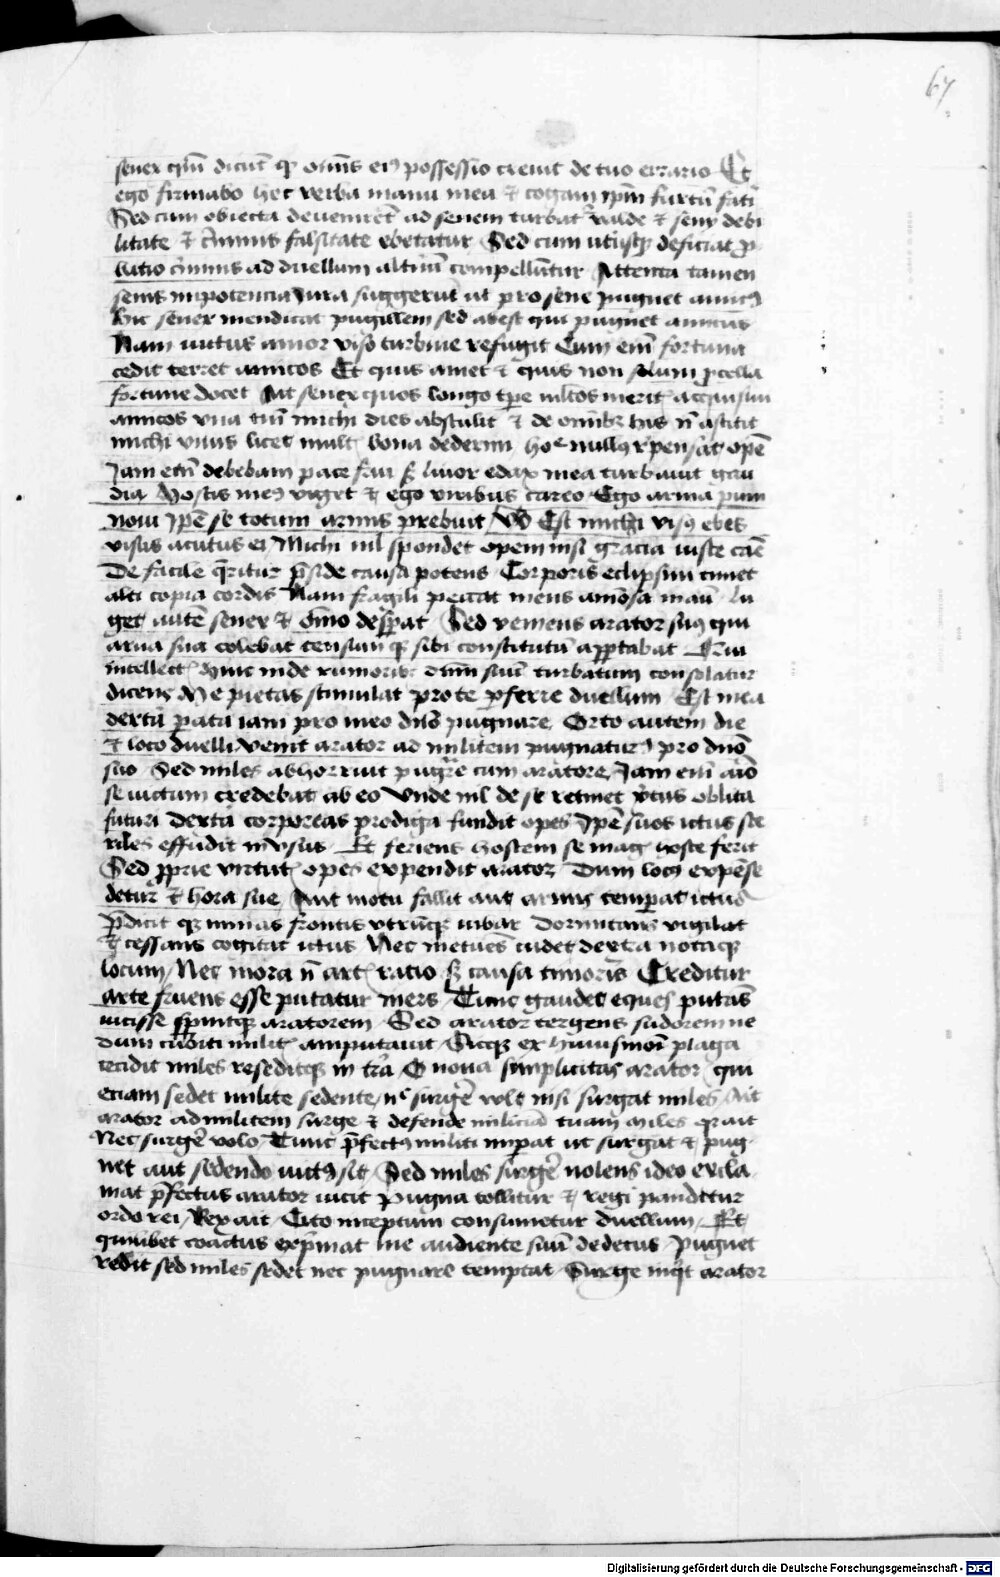 67
senex diciť qꝫ possessio creuit de tuo errario Et
ego firmabo hec verba manu mea ⁊ cogam ip̄m furtū fati
Sed cum obiecta deuenireť ad senem turbat᷑ valde ⁊ seny debi
litate ⁊ c̓minis falsitate ebetatur Sed cum utiusqꝫ deficiat p̱
batio c̓minis ad duellum compellūtur Attenta tamen
senis impotencia Jura suggerūt ut pro sene pugnet amicꝰ
Hic senex mendicat pugilem sed abest qui pugnet amicus
Nam uictus amor viso turbine refugit Cum em̄ fortuna
cedit terret amicos Et quis amet ⁊ quis non solum p̱cella
fortune docet Ait senex quos longo tp̄e acquisiui
amicos vna michi dies abstulit ⁊ de om̄ibꝫ his n̄ astitit
michi vnus licet bona dederim nullꝰ opē
Jam em̄ debebam pace frui sꝫ liuor edax mea turbauit gau
dia Hostis meꝰ viget ⁊ ego viribus careo Ego arma
noui Jpē se totum armis prebuit Est michi visꝰ ebes
visus acutus ei Michi nil spondet opem nisi gracia iuste cāe
De facile q̄ritur p̄side causa potens Corporis eclipsim timet
alti copia cordis Nam fragili peccat mens
get autē senex ⁊ om̄o desp̱at Sed veniens arator suꝰ qui
arua sua colebat censum qꝫ sibi constitutū apportabat
intellect᷑ huic inde rumoribꝫ dūm suū turbatum consolatur
dicens Me pietas stimulat pro te p̱ferre duellum Est mea
dextra p̱ata iam pro meo dn̄o pugnare Orto autem die
⁊ loco duelli venit arator ad militem pugnaturꝰ pro dn̄o
suo Sed miles abhorruit pugn̄re cum aratore Jam em̄
se uictum credebat ab eo Vnde nil de se retinet v̓tus oblita
futuri Dextra corporeas prodiga fundit opes Jpē suos ictus ste
riles effudit Et feriens hostem se mag᷑ hoste ferit
Sed p̱prie virtut᷑ opes expendit arator Dum locꝰ expēse
detur ⁊ hora sue Aut motu fallit aut armis temperat ictus
P̄dicit qꝫ minas frontis vtrūqꝫ iubar Dormitans vigilat
⁊ cessans cogitat ictus Nec metuēs cudet dextra notatqꝫ
locum Nec mora n̄ art᷑ ratio sꝫ causa timoris Creditur
arte fruens esse putatur iners Tunc gaudet eques putās
uicisse aratorem Sed arator tergens sudorem ne
dum cubiti milit᷑ amputauit Sicqꝫ ex huiusmōi plaga
cecidit miles reseditqꝫ in tr̄a O noua simplicitas arator qui
eciam sedet milite sedente nᶜ surgēr vult nisi surgat miles Ait
arator ad militem surge ⁊ defende miliciā tuam Miles ait
Nec surgēr volo Tunc p̄fectꝰ militi imperat ut surgat ⁊ pug
net aut sedendo uictꝰ sit Sed miles surgēr nolens ideo excla
mat p̄fectus arator uicit Pugna tollitur ⁊ regi panditur
ordo rei Rex ait Cito inceptum consumetur duellum Et
quilibet coactus exp̱imat me audiente suū dedecus Pugnet
redit sed miles sedet nec pugnare temptat Surge inq̓t arator
Digitalisierung gefördert durch die Deutsche Forschungsgemeinschaft - DFG